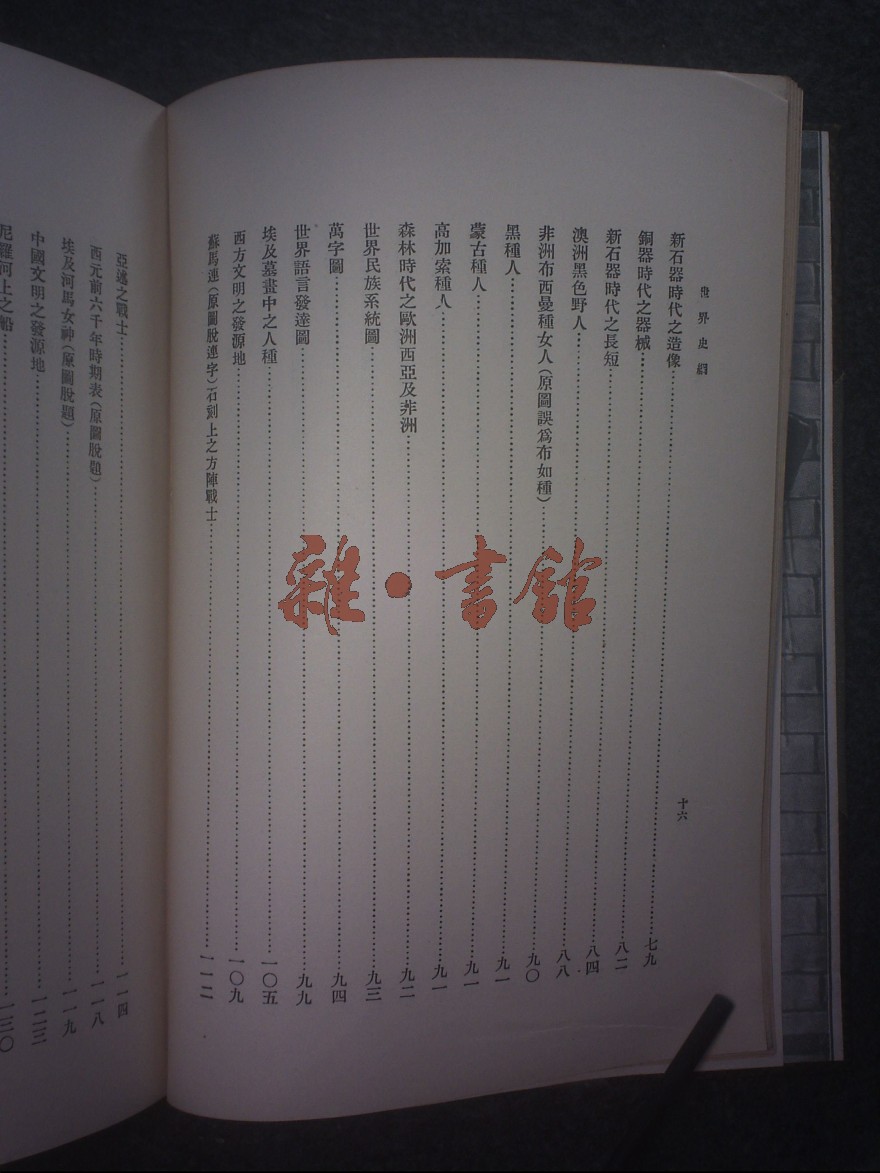 世界史綱
十六
新石器時代之造像……七九
銅器時代之器械……八二
新石器時代之長短……八四
澳洲黑色野人……八八
非洲布西曼種女人（原圖誤爲布如種）……九〇
黑種人……九一
蒙古種人……九一
高加索種人……九一
森林時代之歐洲西亞及非洲……九二
世界民族系統圖……九三
萬字圖……九四
世界語言發達圖……九九
埃及墓畫中之人種……一〇五
西方文明之發源地……一〇九
蘇馬連（原圖脫連字）石刻上之方陣戰士……一一二
亞述之戰士……一一四
西元前六千年時期表（原圖脫題）……一一八
埃及河馬女神（原圖脫題）……一一九
中國文明之發源地……一二三
尼羅河上之船……一三〇
雜·書館